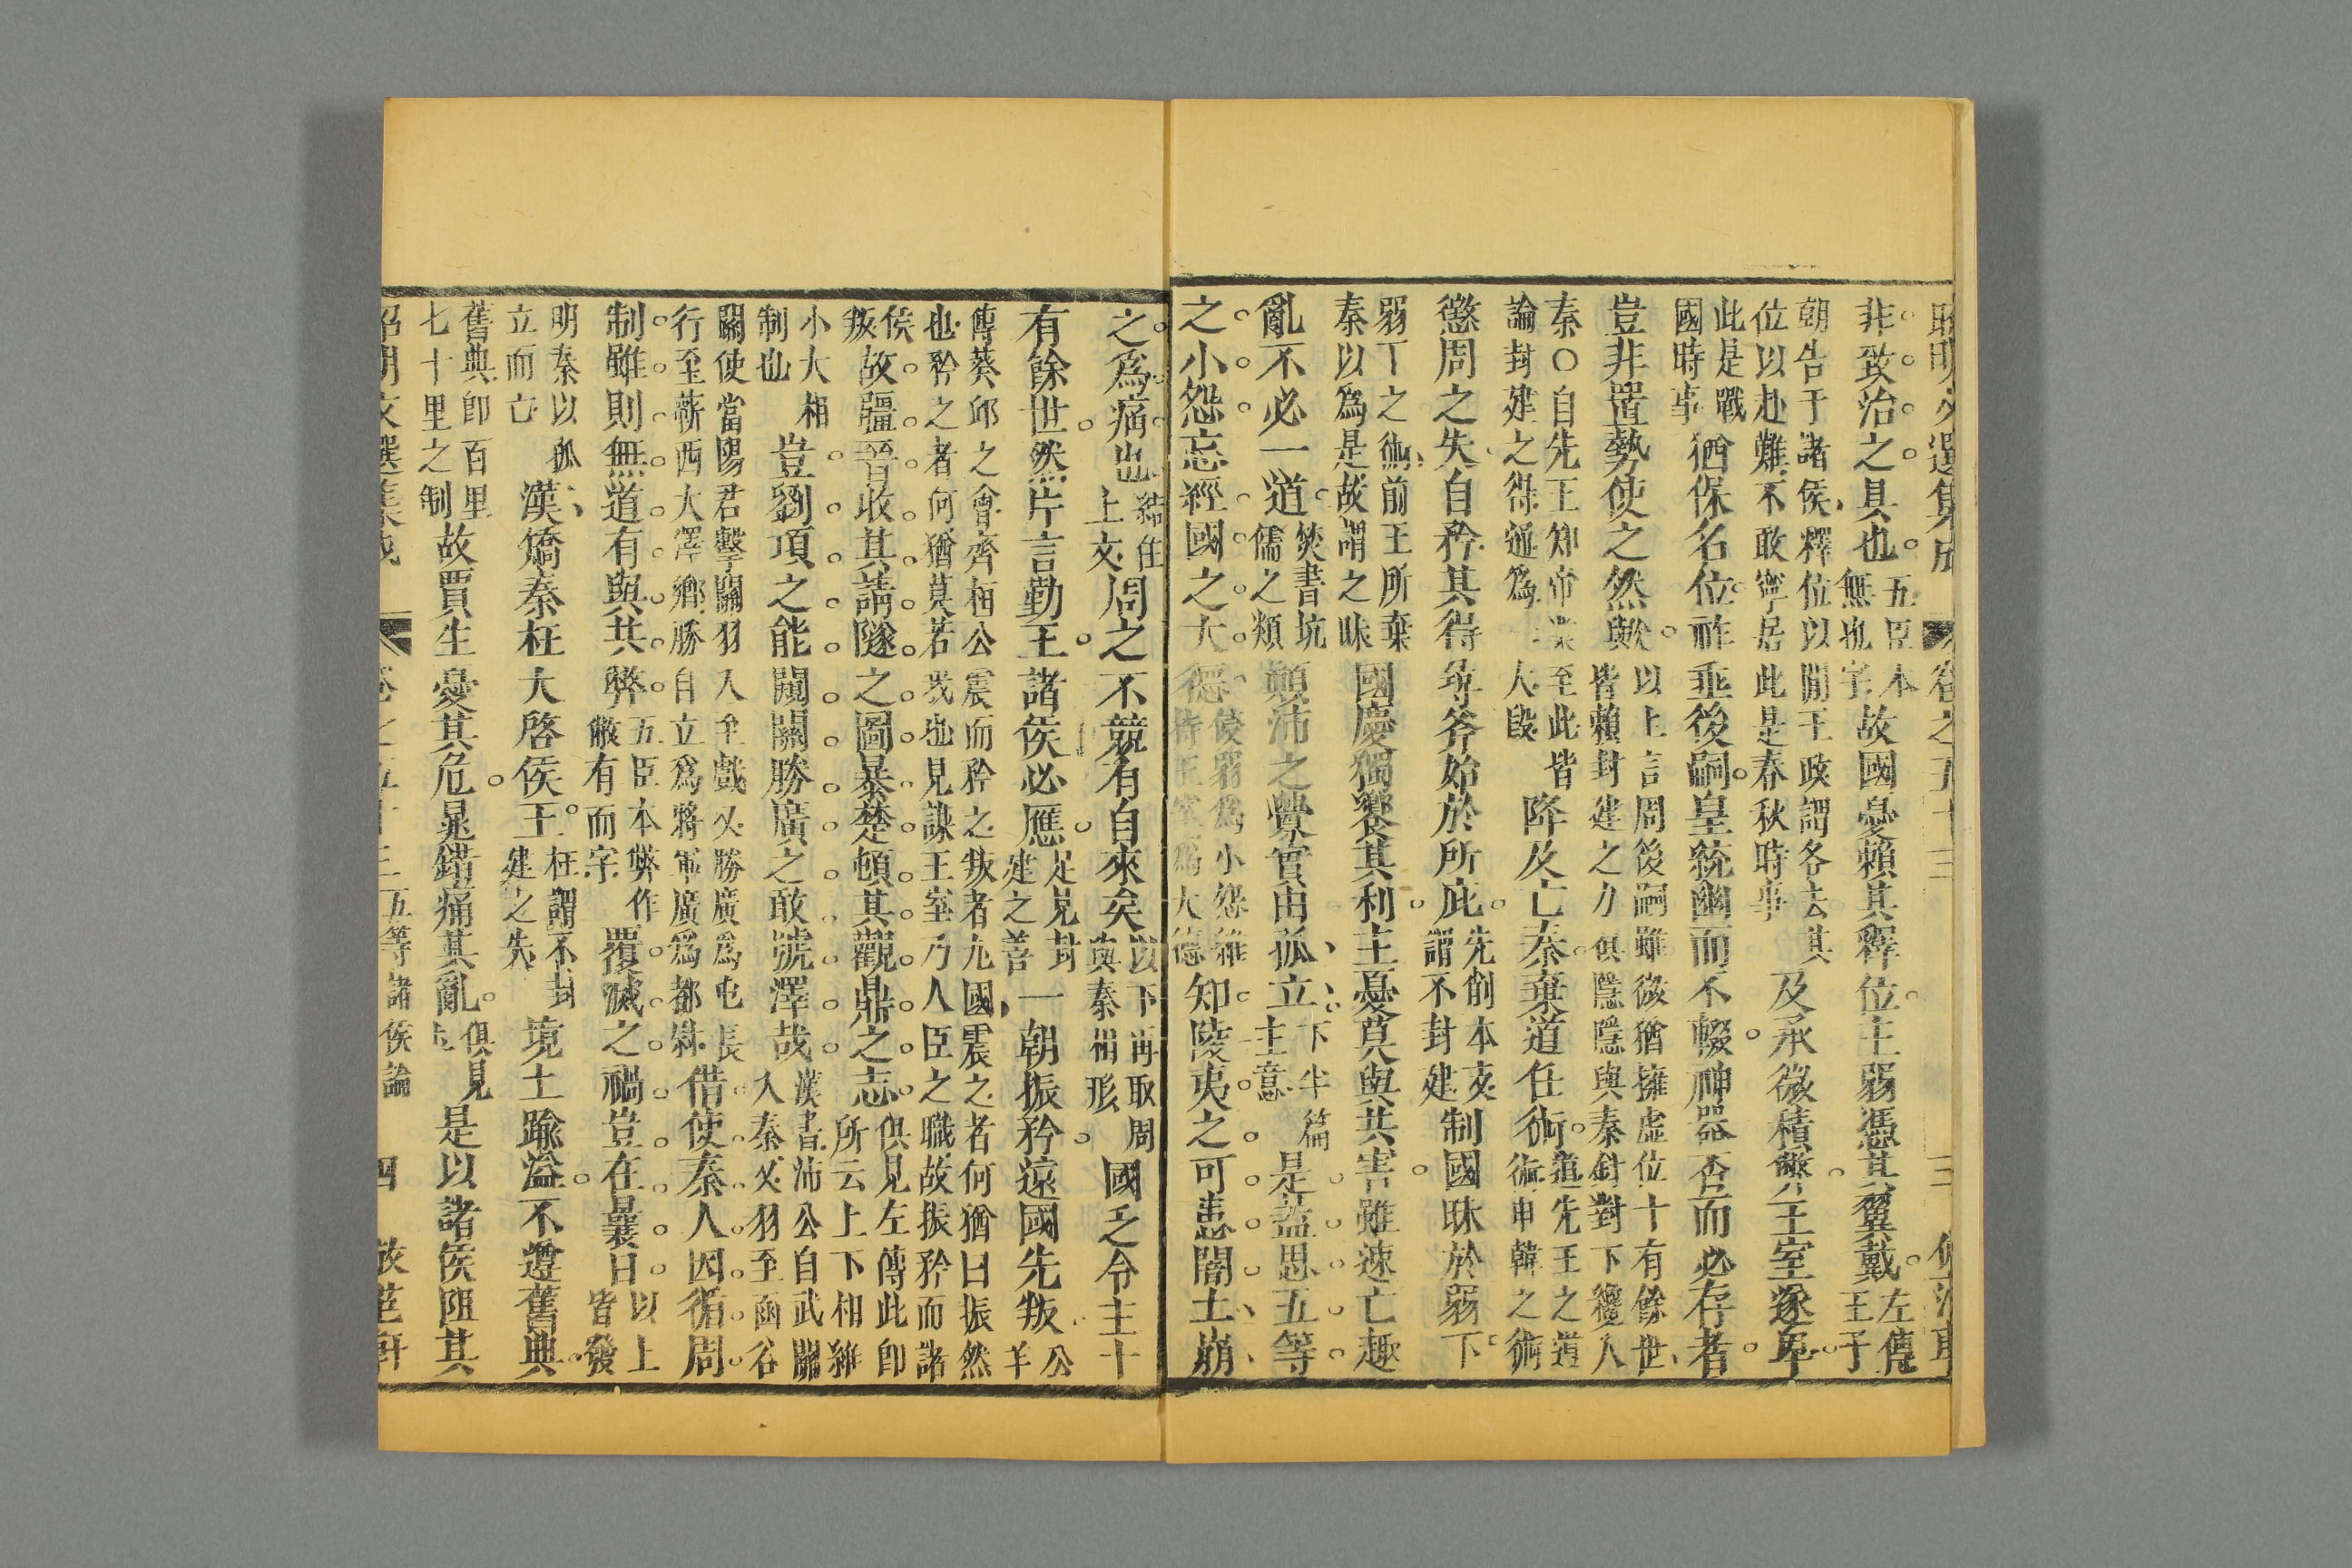 昭明文選集成 卷之五十三 三
非致治之具也五臣本無也字故國憂賴其釋位主弱憑其翼戴左傳王子
朝告于諸侯釋位以閒王政謂各去其位以赴難不敢寧居此是春秋時事及承微積弊王室遂卑
此是戰國時事猶保名位祚垂後嗣皇統幽而不輟神器否而必存者
豈非置勢使之然歟以上言周後嗣雖微猶擁虛位十有餘世皆賴封建之力俱隱隱與秦針對下纔入
秦○自先王知帝業至此皆論封建之得通為一大段降及亡秦棄道任術道先王之道術申韓之術
懲周之失自矜其得尋斧始於所庇先削本支謂不封建制國昧於弱下
弱下之術前王所棄秦以為是故謂之昧國慶獨饗其利主憂莫與共害雖速亡趣
亂不必一道焚書坑儒之類顛沛之釁實由孤立下半篇主意是蓋思五等
之小怨忘經國之大德侵弱為小怨維持王室為大德知陵夷之可患闇土崩
之為痛也結住上文周之不競有自來矣以下再取周與秦相形國乏令主十
有餘世然片言勤王諸侯必應足見封建之善一朝振矜遠國先叛公羊
傳葵邱之會齊桓公震而矜之叛者九國震之者何猶曰振然也矜之者何猶莫若我也見謙王室乃人臣之職故振矜而諸
侯叛故彊晉收其請隧之圖暴楚頓其觀鼎之志俱見左傳此即所云上下相維
小大相制也豈劉項之能闚關勝廣之敢號澤哉漢書沛公自武關入秦又羽至函谷
關使當陽君擊關羽入至戲又勝廣為屯長行至蘄西大澤鄉勝自立為將軍廣為都尉借使秦人因循周
制雖則無道有與共弊五臣本弊作敝有而字覆滅之禍豈在曩日以上皆發
明秦以孤立而亡漢矯秦枉大啓侯王枉謂不封建之失境土踰溢不遵舊典
舊典即百里七十里之制故賈生憂其危晁錯痛其亂俱見上是以諸侯阻其
昭明文選集成 卷之五十三 五等諸侯論 四